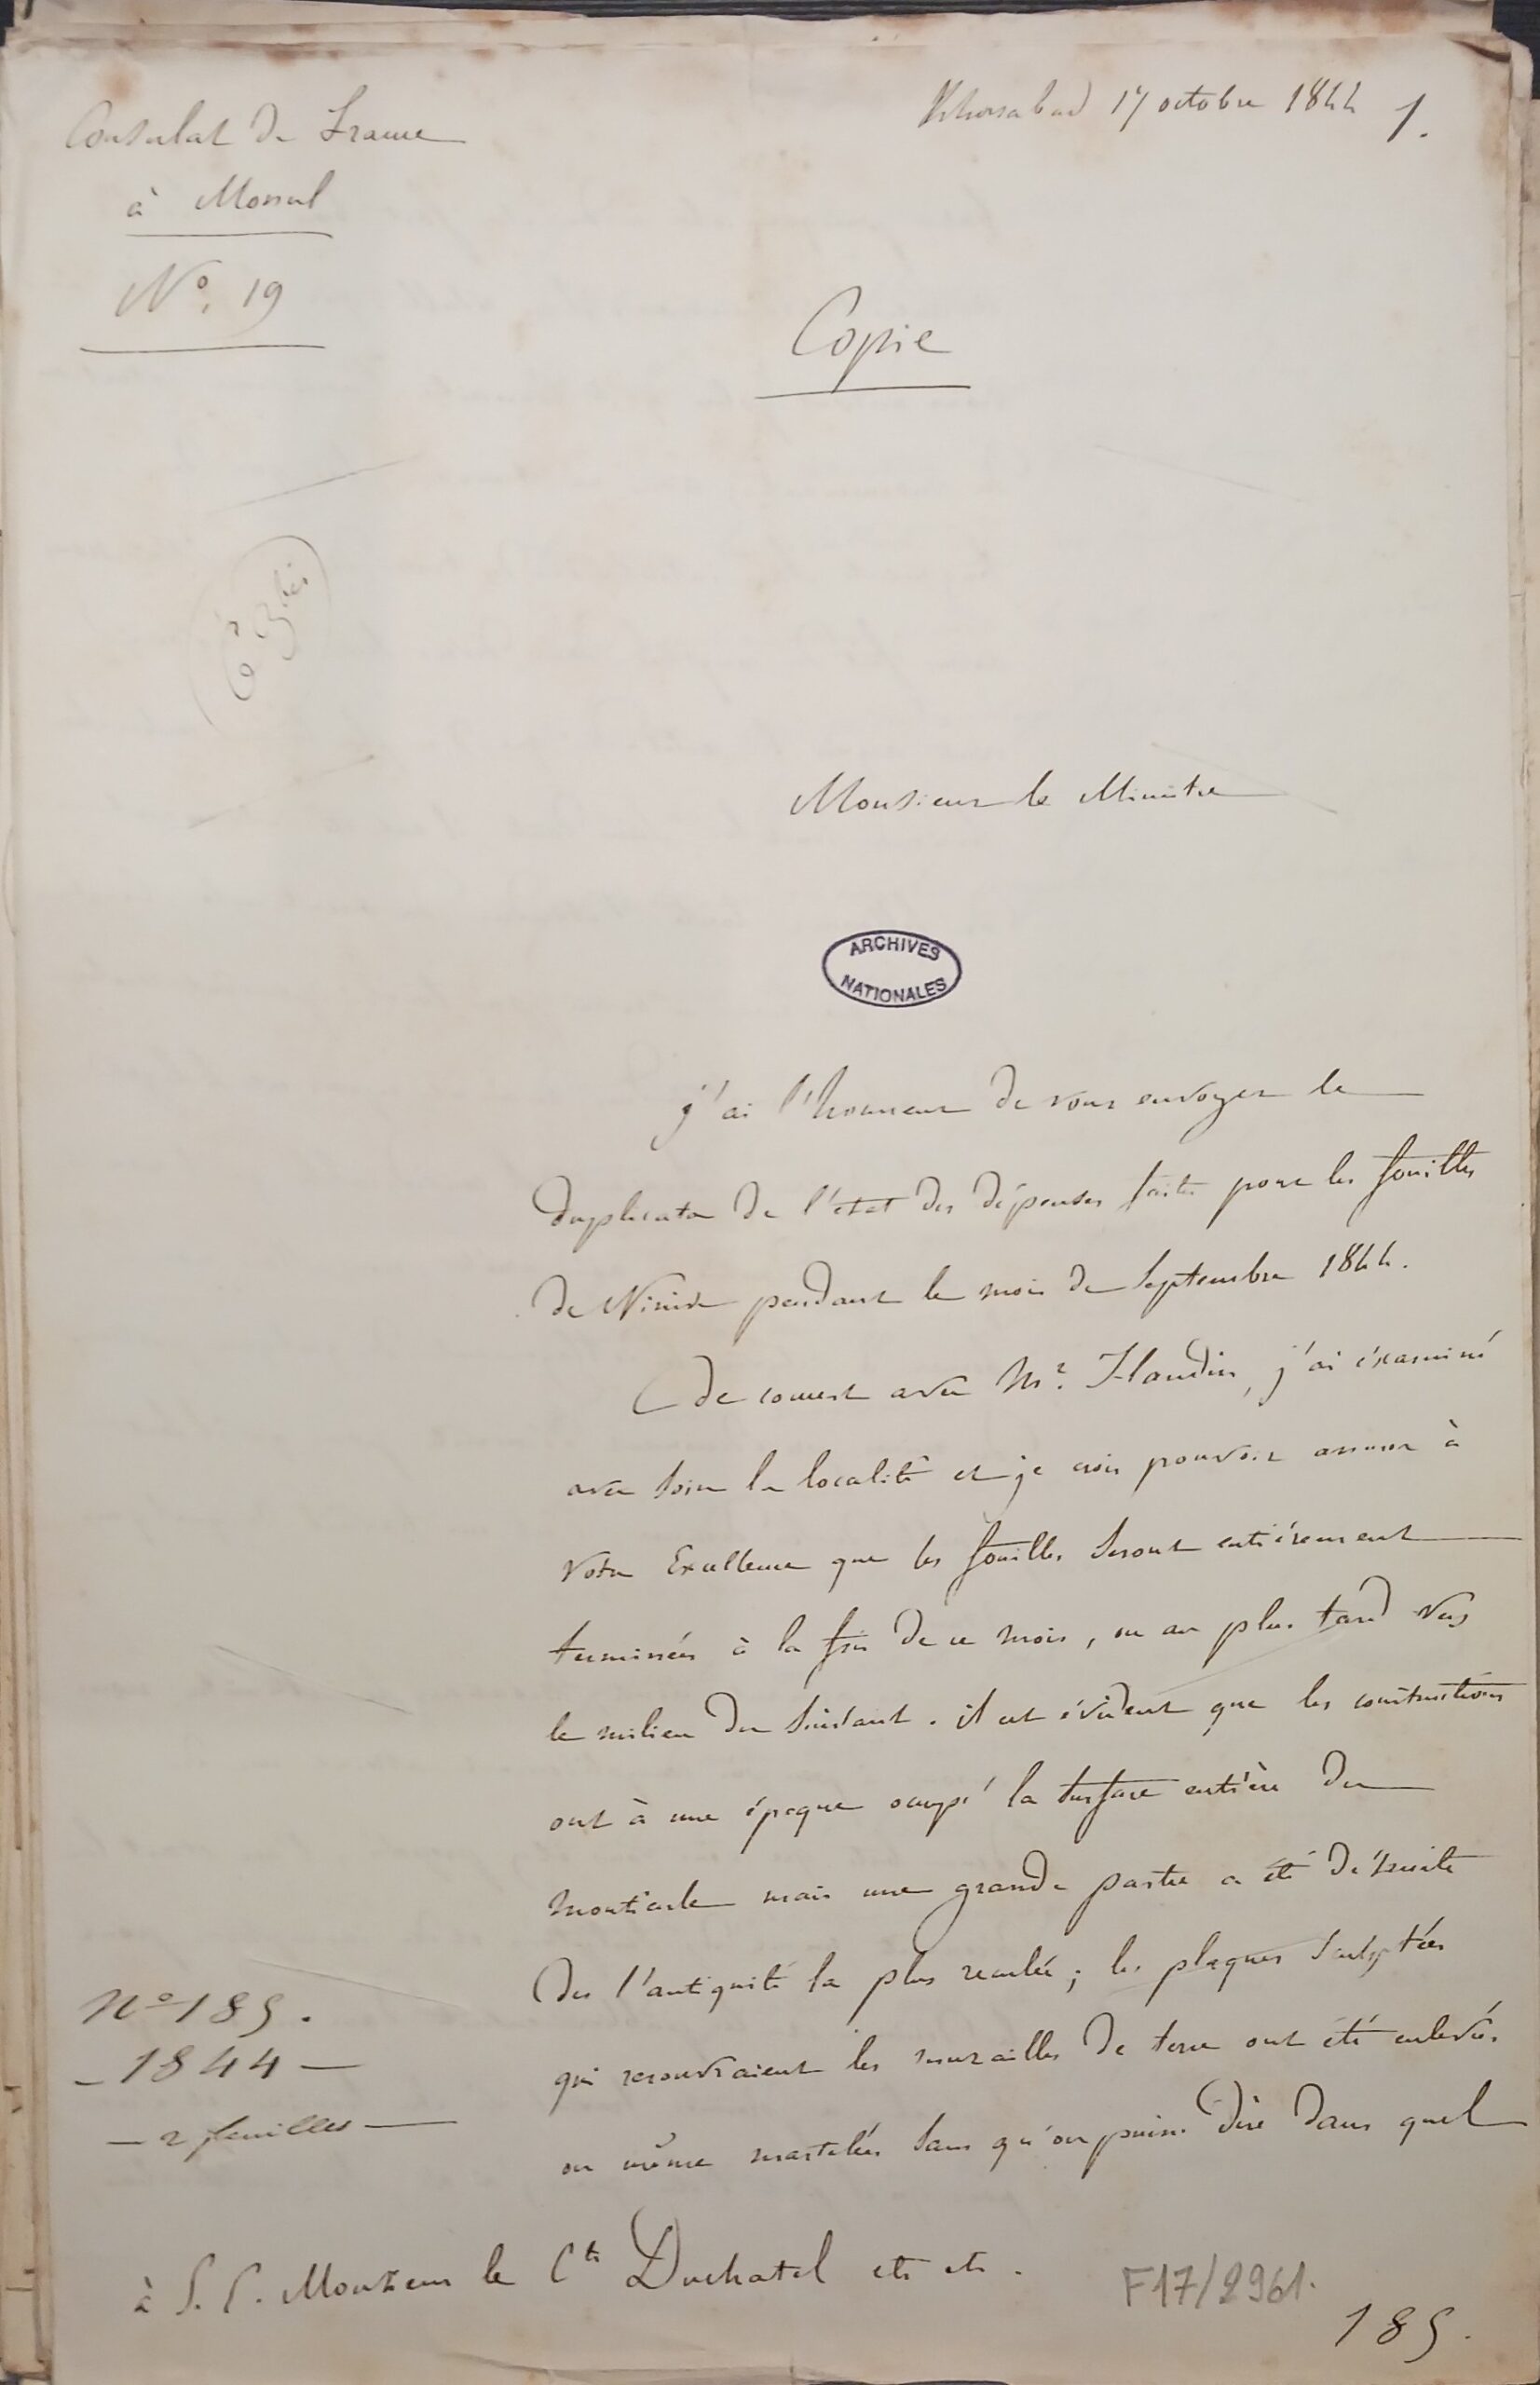 Khorsabad 17 octobre 1844 1.
Consulat de France
à Mossul
N°. 19
Copie
Monsieur le Ministre
ARCHIVES
NATIONALES
j'ai l'honneur de vous envoyer le
duplicata de l'état des dépenses faites pour les fouilles
de Ninive pendant le mois de Septembre 1844.
De concert avec Mr. Flandin, j'ai éxaminé
avec soin la localité et je crois pouvoir assurer à
Votre Excellence que les fouilles seront entièrement
terminées à la fin de ce mois, ou au plus tard vers
le milieu du suivant. il est évident que les constructions
ont à une époque occupé la surface entière du
monticule mais une grande partie a été détruite
dès l'antiquité la plus reculée; les plaques sculptées
qui recouvraient les murailles de terre ont été enlevées
ou même martelées sans qu'on puisse dire dans quel
N° 185.
- 1844 -
- 2 feuilles -
à S. E. Monsieur le Cte Duchatel etc etc.
F17/2961.
185.